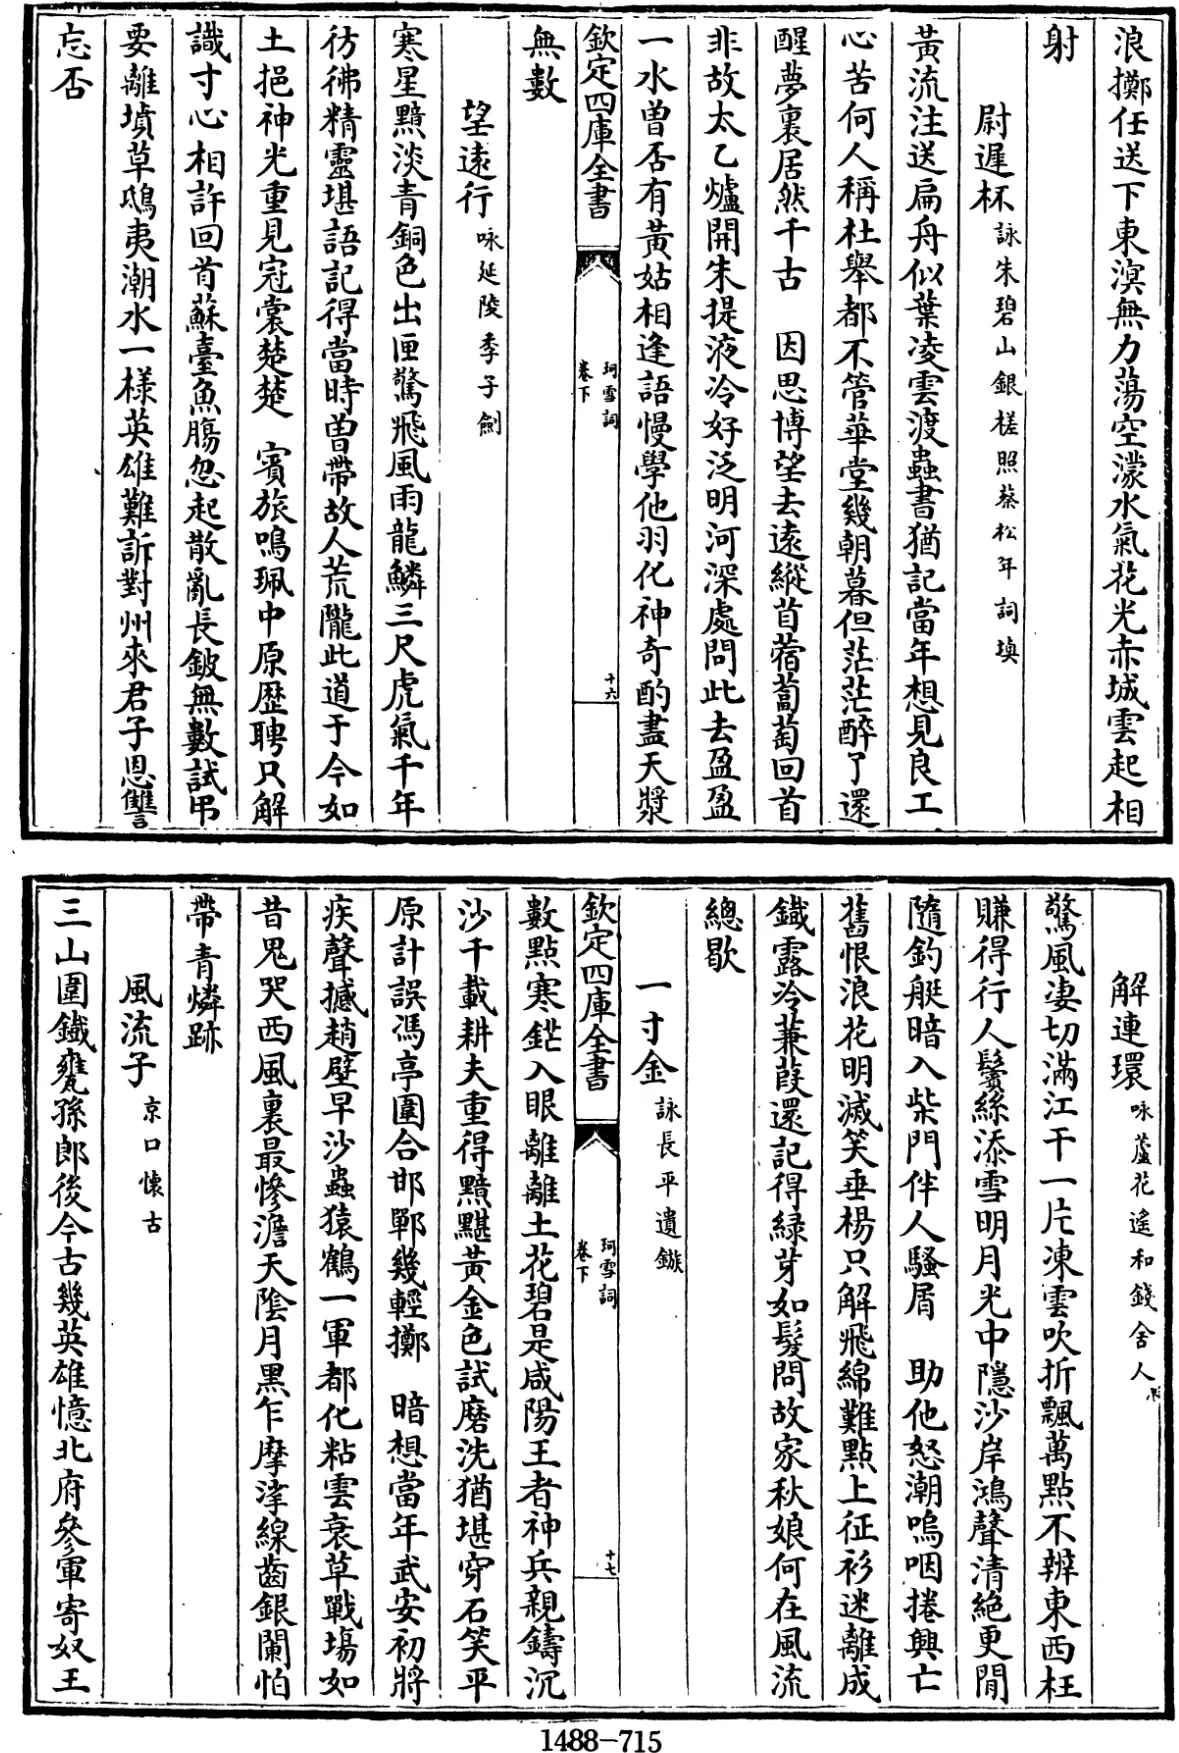 浪擲任送下東溟無力蕩空濛水氣花光赤城雲起相
射
尉遲杯 詠朱碧山銀槎照蔡松年詞填
黃流注送扁舟似葉凌雲渡蟲書猶記當年想見良工
心苦何人稱杜舉都不管華堂幾朝暮但茫茫醉了還
醒夢裏居然千古 因思博望去遠縱苜蓿蔔萄回首
非故太乙爐開朱提液冷好泛明河深處問此去盈盈
一水曽否有黃姑相逢語慢學他羽化神奇酌盡天漿
欽定四庫全書 珂雪詞 卷下 十六
無數
望遠行 咏延陵季子劍
寒星黯淡青銅色出匣驚飛風雨龍鱗三尺虎氣千年
彷彿精靈堪語記得當時曽帶故人荒隴此道于今如
土挹神光重見冠裳楚楚 賓旅鳴珮中原歷聘只解
識寸心相許回首蘇臺魚膓忽起散亂長鈹無數試弔
要離墳草鴟夷潮水一樣英雄難訴對州來君子恩讐
忘否
解連環 咏蘆花遙和錢舍人
驚風淒切滿江干一片凍雲吹折飄萬點不辨東西枉
賺得行人鬢絲添雪明月光中隱沙岸鴻聲清絶更閒
隨釣艇暗入柴門伴人騷屑 助他怒潮嗚咽捲興亡
舊恨浪花明滅笑垂楊只解飛綿難點上征衫迷離成
鐡露冷蒹葭還記得緑芽如髮問故家秋娘何在風流
總歇
一寸金 詠長平遺鏃
欽定四庫全書 珂雪詞 卷下 十七
數點寒鋩入眼離離土花碧是咸陽王者神兵親鑄沉
沙千載耕夫重得黯黮黃金色試磨洗猶堪穿石笑平
原計誤馮亭圍合邯鄲幾輕擲 暗想當年武安初將
疾聲撼趙壁早沙蟲猿鶴一軍都化粘雲衰草戰場如
昔鬼哭西風裏最慘澹天陰月黑乍摩挲線齒銀闌怕
帶青燐跡
風流子 京口懷古
三山圍鐡甕孫郎後今古幾英雄憶北府參軍寄奴王
1488—715